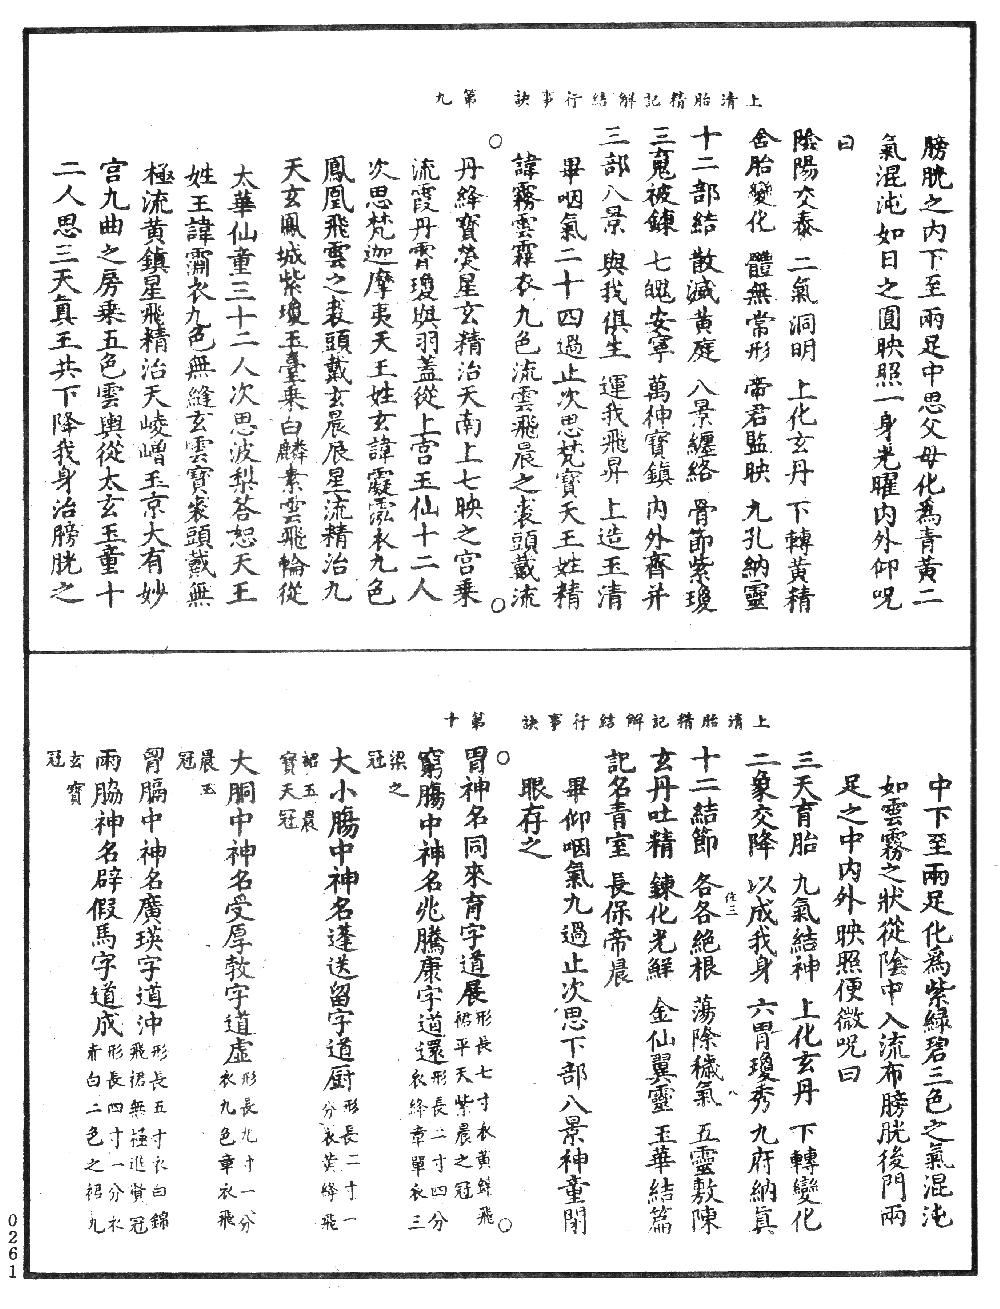 上清胎精記解結行事訣　第九
膀胱之内下至兩足中思父母化爲青黄二
氣混沌如日之圓映照一身光曜内外仰呪
曰
陰陽交泰　二氣洞明　上化玄丹　下轉黄精
舍胎變化　體無常形　帝君監映　九孔納靈
十二部結　散滅黄庭　八景纏絡　骨節紫瓊
三䰟被鍊　七魄安寧　萬神寶鎮　内外齊并
三部八景　與我俱生　運我飛昇　上造玉清
畢咽氣二十四過止次思梵寶天王姓精
諱霧雲霖衣九色流雲飛晨之裘頭戴流
丹絳寶熒星玄精治天南上七映之宫乗
流霞丹霄瓊輿羽蓋從上宫玉仙十二人
次思梵迦摩夷天王姓玄諱霞霐衣九色
鳳凰飛雲之裘頭戴玄晨辰星流精治九
天玄鳳城紫瓊玉臺乗白麟素雲飛輪從
太華仙童三十二人次思波梨荅恕天王
姓王諱霌衣九色無縫玄雲寶裘頭戴無
極流黄鎮星飛精治天崚嶒玉京大有妙
宫九曲之房乗五色雲輿從太玄玉童十
二人思三天真王共下降我身治膀胱之
上清胎精記解結行事訣　第十
中下至兩足化爲紫緑碧三色之氣混沌
如雲霧之狀從陰中入流布膀胱後門兩
足之中内外映照便微呪曰
三天育胎　九氣結神　上化玄丹　下轉變化
二象交降　以成我身　六胃瓊秀　九府納真
十二結節　各各絶根　蕩除穢氣　五靈敷陳
玄丹吐精　鍊化光鮮　金仙翼靈　玉華結篇
記名青室　長保帝晨
畢仰咽氣九過止次思下部八景神童閉
眼存之
胃神名同來育字道展形長七寸衣黄錦飛裙平天紫晨之冠
窮腸中神名兆騰康字道還形長二寸四分衣絳章單衣三梁之冠
大小腸中神名蓬送留字道厨形長二寸一分衣黄絳飛裙五晨寶天冠
大胴中神名受厚教字道虚形長九寸一分衣九色章衣飛晨玉冠
胷膈中神名廣瑛字道沖形長五寸衣白錦飛裙無極進賢冠
兩脇神名辟假馬字道成形長四寸一分衣赤白二色之裙九玄寶冠
0261